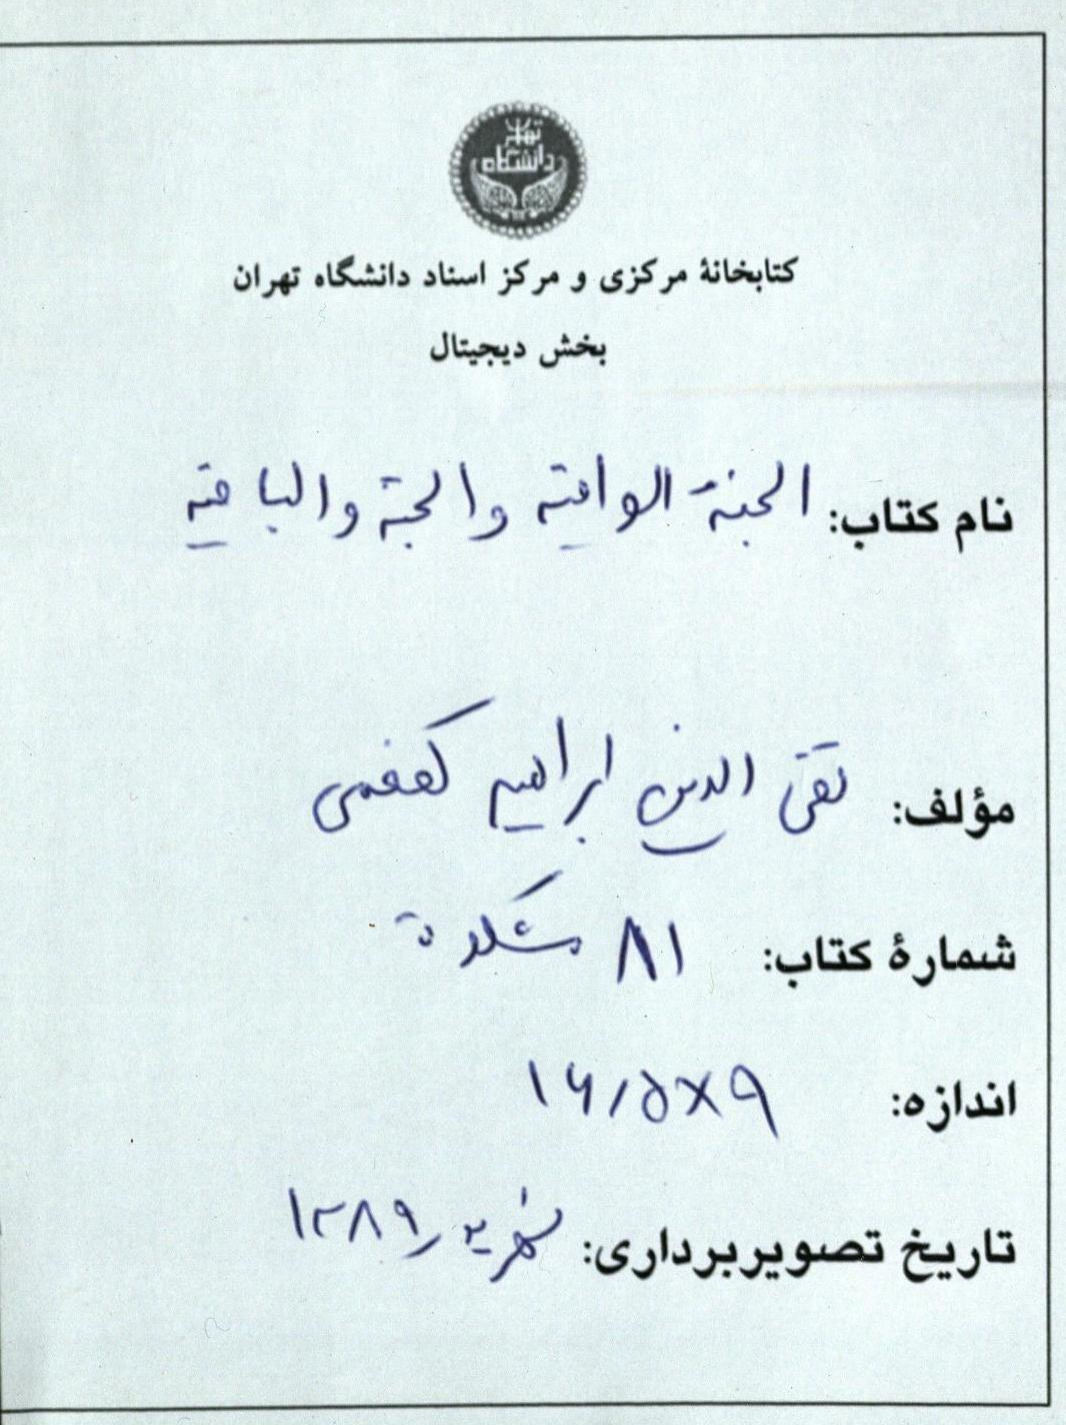 دانشگاه تهران
کتابخانهٔ مرکزی و مرکز اسناد دانشگاه تهران
بخش دیجیتال
نام کتاب: الجنة الواقیه والجنة والباقیه
مؤلف: تقی الدین ابراهیم کفعمی
شمارهٔ کتاب: ۸۱ مشکوة
اندازه: ۱۶/۵×۹
تاریخ تصویربرداری: شهریور ۱۳۸۹